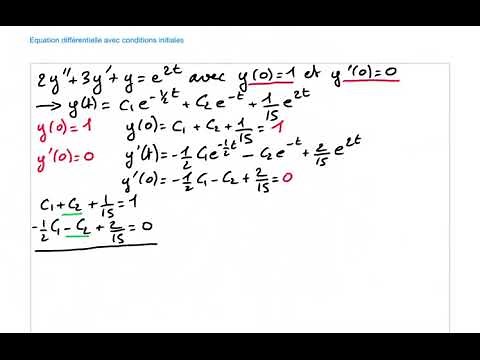 Equation différentielle avec conditions initiales
2y''+3y'+y=e^{2t} avec y(0)=1 et y'(0)=0
→ y(t) = C₁e^{-1/2t} + C₂e^{-t} + 1/15 e^{2t}
y(0)=1 y(0)= C₁ + C₂ + 1/15 = 1
y'(0)=0 y'(t) = -1/2 C₁e^{-1/2t} - C₂e^{-t} + 2/15 e^{2t}
y'(0) = -1/2 C₁ - C₂ + 2/15 = 0
C₁ + C₂ + 1/15 = 1
-1/2 C₁ - C₂ + 2/15 = 0